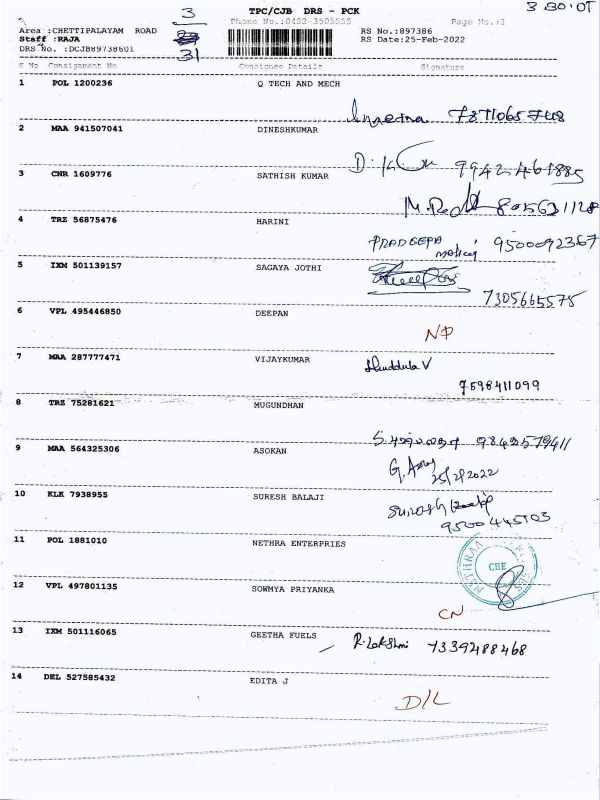 3
TPC/CJB DRS - PCK
Phone No.:0422-3505555
Page No.:2
Area :CHETTIPALAYAM ROAD
Staff :RAJA
31
RS No.:897386
RS Date:25-Feb-2022
DRS No. :DCJB89738601
S No Consignment No Consignee Details Signature
1 POL 1200236 Q TECH AND MECH
2 MAA 941507041 DINESHKUMAR
3 CNR 1609776 SATHISH KUMAR
4 TRZ 56875476 HARINI
PRADEEPA
5 IXM 501139157 SAGAYA JOTHI
7305665575
6 VPL 495446850 DEEPAN
NP
7 MAA 287777471 VIJAYKUMAR
7598411099
8 TRZ 75281621 MUGUNDHAN
9 MAA 564325306 ASOKAN
25/2/2022
10 KLK 7938955 SURESH BALAJI
11 POL 1881010 NETHRA ENTERPRIES
NETHRAA
CBE
12 VPL 497801135 SOWMYA PRIYANKA
CN
13 IXM 501116065 GEETHA FUELS R. Lakshmi 7339288468
14 DEL 527585432 EDITA J
D/L